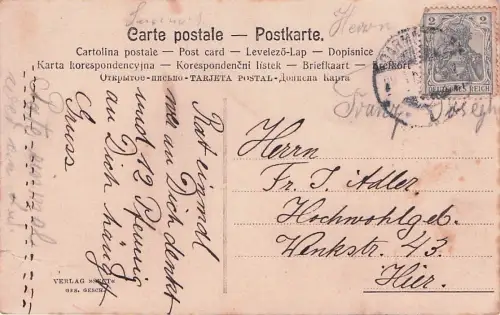 Carte postale — Postkarte.
Cartolina postale — Post card — Levelező-Lap — Dopisnice
Karta korespondencyjna — Korespondenční listek — Briefkaart — Brefkort
Открытое-письмо — TARJETA POSTAL — Дописна Карта
Herrn
2 2
DEUTSCHES REICH
Franz Joseph
Rat einmal
wie an Dich denkt
und 12 Pfennig
an Dich hängt
Gruss
Herrn
Fr. J. Adler
Hochwohlgeb.
Wenkstr. 43.
Hier.
VERLAG
GES. GESCH.